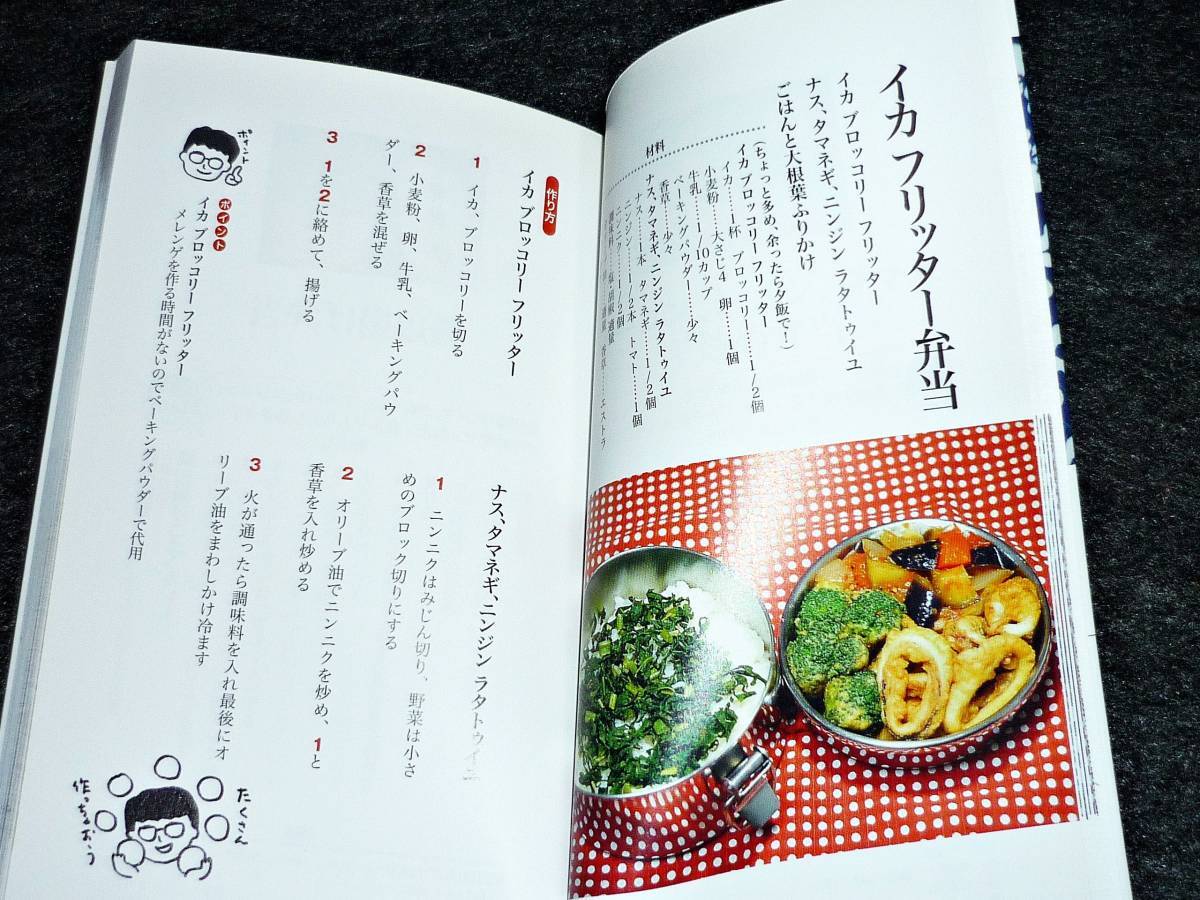 イカ フリッター弁当
イカ ブロッコリー フリッター
ナス、タマネギ、ニンジン ラタトゥイユ
ごはんと大根葉ふりかけ
(ちょっと多め、余ったら夕飯で!)
材料
イカ ブロッコリー フリッター
イカ……1杯 ブロッコリー……1/2個
小麦粉……大さじ4 卵……1個
牛乳……1/10カップ
ベーキングパウダー……少々
香草……少々
ナス、タマネギ、ニンジン ラタトゥイユ
ナス……1本 タマネギ……1/2個
ニンジン……1/2本 トマト……1個
ニンニク……1/2個
調味料……塩、胡椒 適量
香草……エストラ
作り方
イカ ブロッコリー フリッター
1 イカ、ブロッコリーを切る
2 小麦粉、卵、牛乳、ベーキングパウ
ダー、香草を混ぜる
3 1を2に絡めて、揚げる
ポイント
ポイント
イカ ブロッコリー フリッター
メレンゲを作る時間がないのでベーキングパウダーで代用
ナス、タマネギ、ニンジン ラタトゥイユ
1 ニンニクはみじん切り、野菜は小さ
めのブロック切りにする
2 オリーブ油でニンニクを炒め、1と
香草を入れ炒める
3 火が通ったら調味料を入れ最後にオ
リーブ油をまわしかけ冷ます
たくさん
作っちゃおう